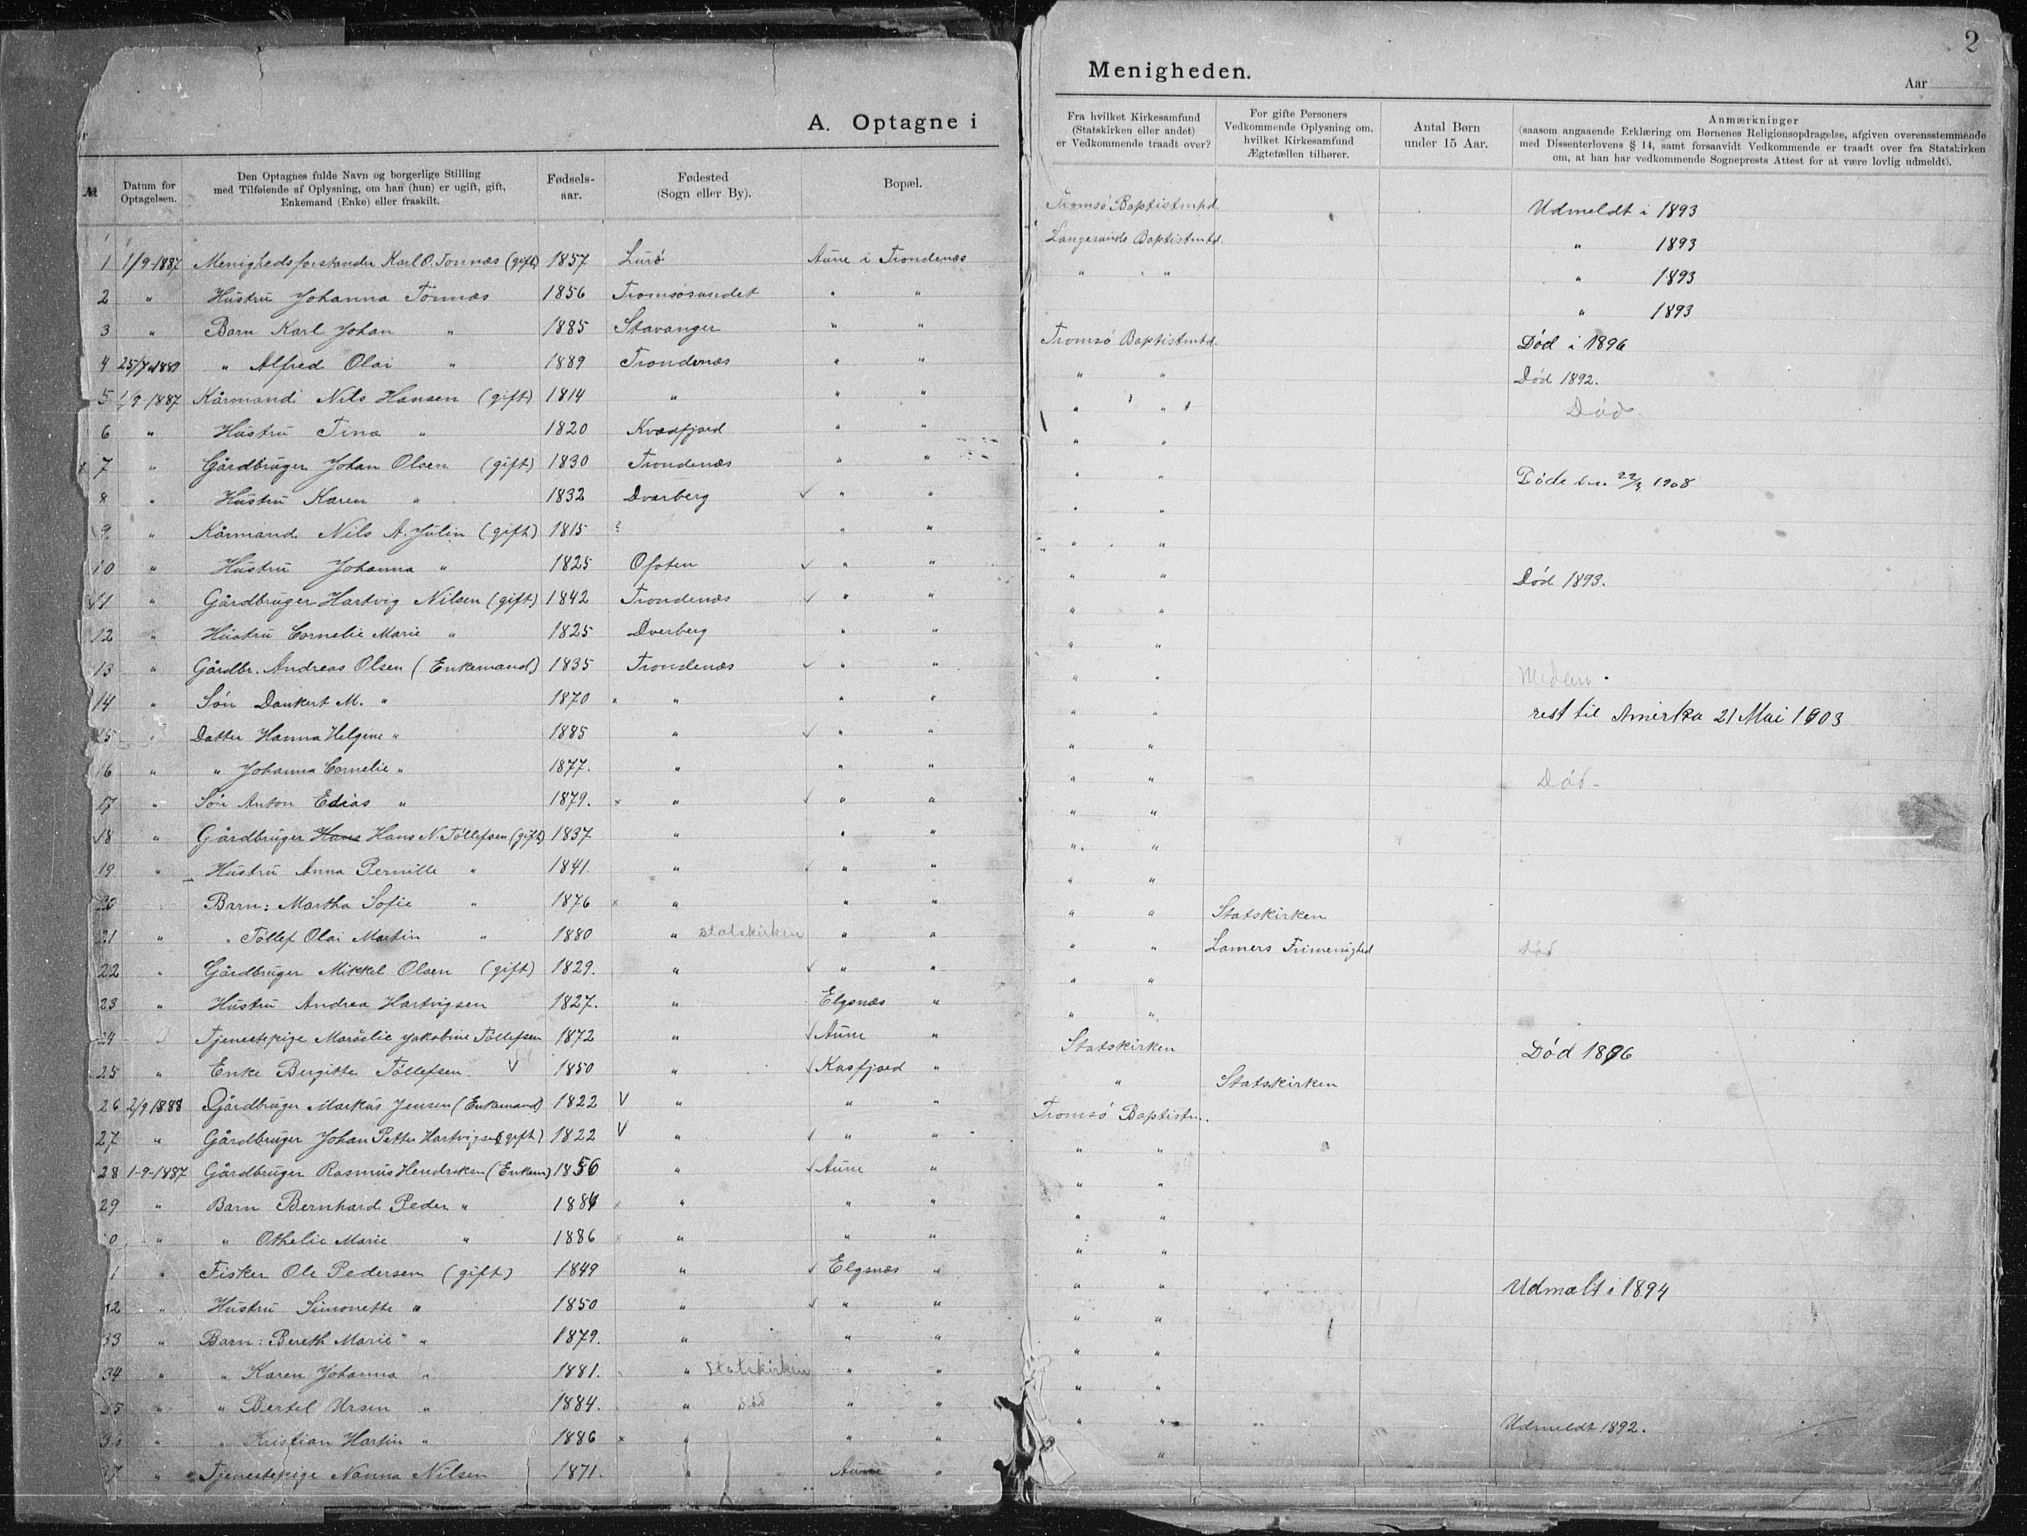 2
A. Optagne i
Menigheden.
Aar
№
Datum for
Optagelsen.
Den Optagnes fulde Navn og borgerlige Stilling
med Tilføiende af Oplysning, om han (hun) er ugift, gift,
Enkemand (Enke) eller fraskilt.
Fødsels-
aar.
Fødested
(Sogn eller By).
Bopæl.
Fra hvilket Kirkesamfund
(Statskirken eller andet)
er Vedkommende traadt over?
For gifte Personers
Vedkommende Oplysning om,
hvilket Kirkesamfund
Ægtefællen tilhører.
Antal Børn
under 15 Aar.
Anmærkninger
(saasom angaaende Erklæring om Børnenes Religionsopdragelse, afgiven overensstemmende
med Dissenterlovens § 14, samt forsaavidt Vedkommende er traadt over fra Statskirken
om, at han har vedkommende Sogneprests Attest for at være lovlig udmeldt).
1 1/9-1887 Menighedsforstander Karl O. Tonnæs (gift) 1857 Lurø Aune i Trondenæs
2 " Hustru Johanna Tonnæs 1856 Tromsøsundet " "
3 " Barn Karl Johan " 1885 Stavanger " "
4 1889 " Alfred Olai " 1889 Trondenæs " "
5 1/9-1887 Kårmand Nils Hansen (gift) 1814 " " "
6 " Hustru Tina " 1820 Kvæfjord " "
7 " Gårdbruger Johan Olsen (gift) 1830 Trondenæs " "
8 " Hustru Karen " 1832 Dverberg " "
9 " Kårmand Nils A. Julin (gift) 1815 ? " "
10 " Hustru Johanna " 1825 Ofoten " "
11 " Gårdbruger Hartvig Nilsen (gift) 1842 Trondenæs " "
12 " Hustru Cornelie Marie " 1825 Dverberg " "
13 " Gårdbr. Andreas Olsen (Enkemand) 1835 Trondenæs " "
14 " Søn Dankert M. " 1870 × " " "
15 " Datter Hanna Helgine " 1885 " " "
16 " " Johanna Cornelie " 1877. " " "
17 " Søn Anton Edias " 1879. × " " "
18 " Gårdbruger Hans Hans N. Töllefsen (gift) 1837 " " "
19 " Hustru Anna Pernille " 1841. " " "
20 Barn: Martha Sofie " 1876 × " " "
21 " " Töllef Olai Martin " 1880 " Statskirken " "
22 " Gårdbruger Mikkel Olsen (gift) 1829. " " "
23 " Hustru Andrea Hartvigsen 1827. " Elgsnæs "
24 Tjenestepige Marselie Jakobine Töllefsen 1872 " Aune "
25 " Enke Bergitte Töllefsen V 1850 " Kasfjord "
26 2/9 1888 Gårdbruger Markus Jensen (Enkemand) 1822 V " " "
27 " Gårdbruger Johan Petter Hartvigsen (gift) 1822 V " " "
28 1-9-1887 Gårdbruger Rasmus Hendriksen (Enkem) 1856 " Aune "
29 " Barn Bernhard Peder " 1884 " " "
0 " " Othelie Marie " 1886 " " "
1 " Fisker Ole Pedersen (gift) 1849 " Elgsnæs "
32 " Hustru Simonette " 1850 " " "
33 " Barn: Bereth Marie " 1879. " " "
34 " " Karen Johanna " 1881. " Statskirken " "
35 " " Bertel Ursin " 1884. " død " "
36 " " Kristian Hartin " 1886 × " " "
37 " Tjenestepige Nanna Nilsen 1871. " Aune "
Tromsö Baptistmhd. Udmeldt i 1893
Langesunds Baptistmtd. " 1893
" " " 1893
" 1893
Tromsö Baptistmtd. Död i 1896
" " Död 1892.
" " Död.
" "
" " Döde 1908
" "
" "
" " Död 1893.
" "
" "
" "
" " rest til Amerka 21 Mai 1903
" "
" " Död.
" "
" "
" "
" " Statskirken
" " Lamers Frimenighed Död
" "
" "
Statskirken Död 1896
" Statskirken
Tromsö Baptistm.
" "
" "
" "
" "
" " Udmælt i 1894
" "
" "
" "
" " Udmeldt 1892.
"